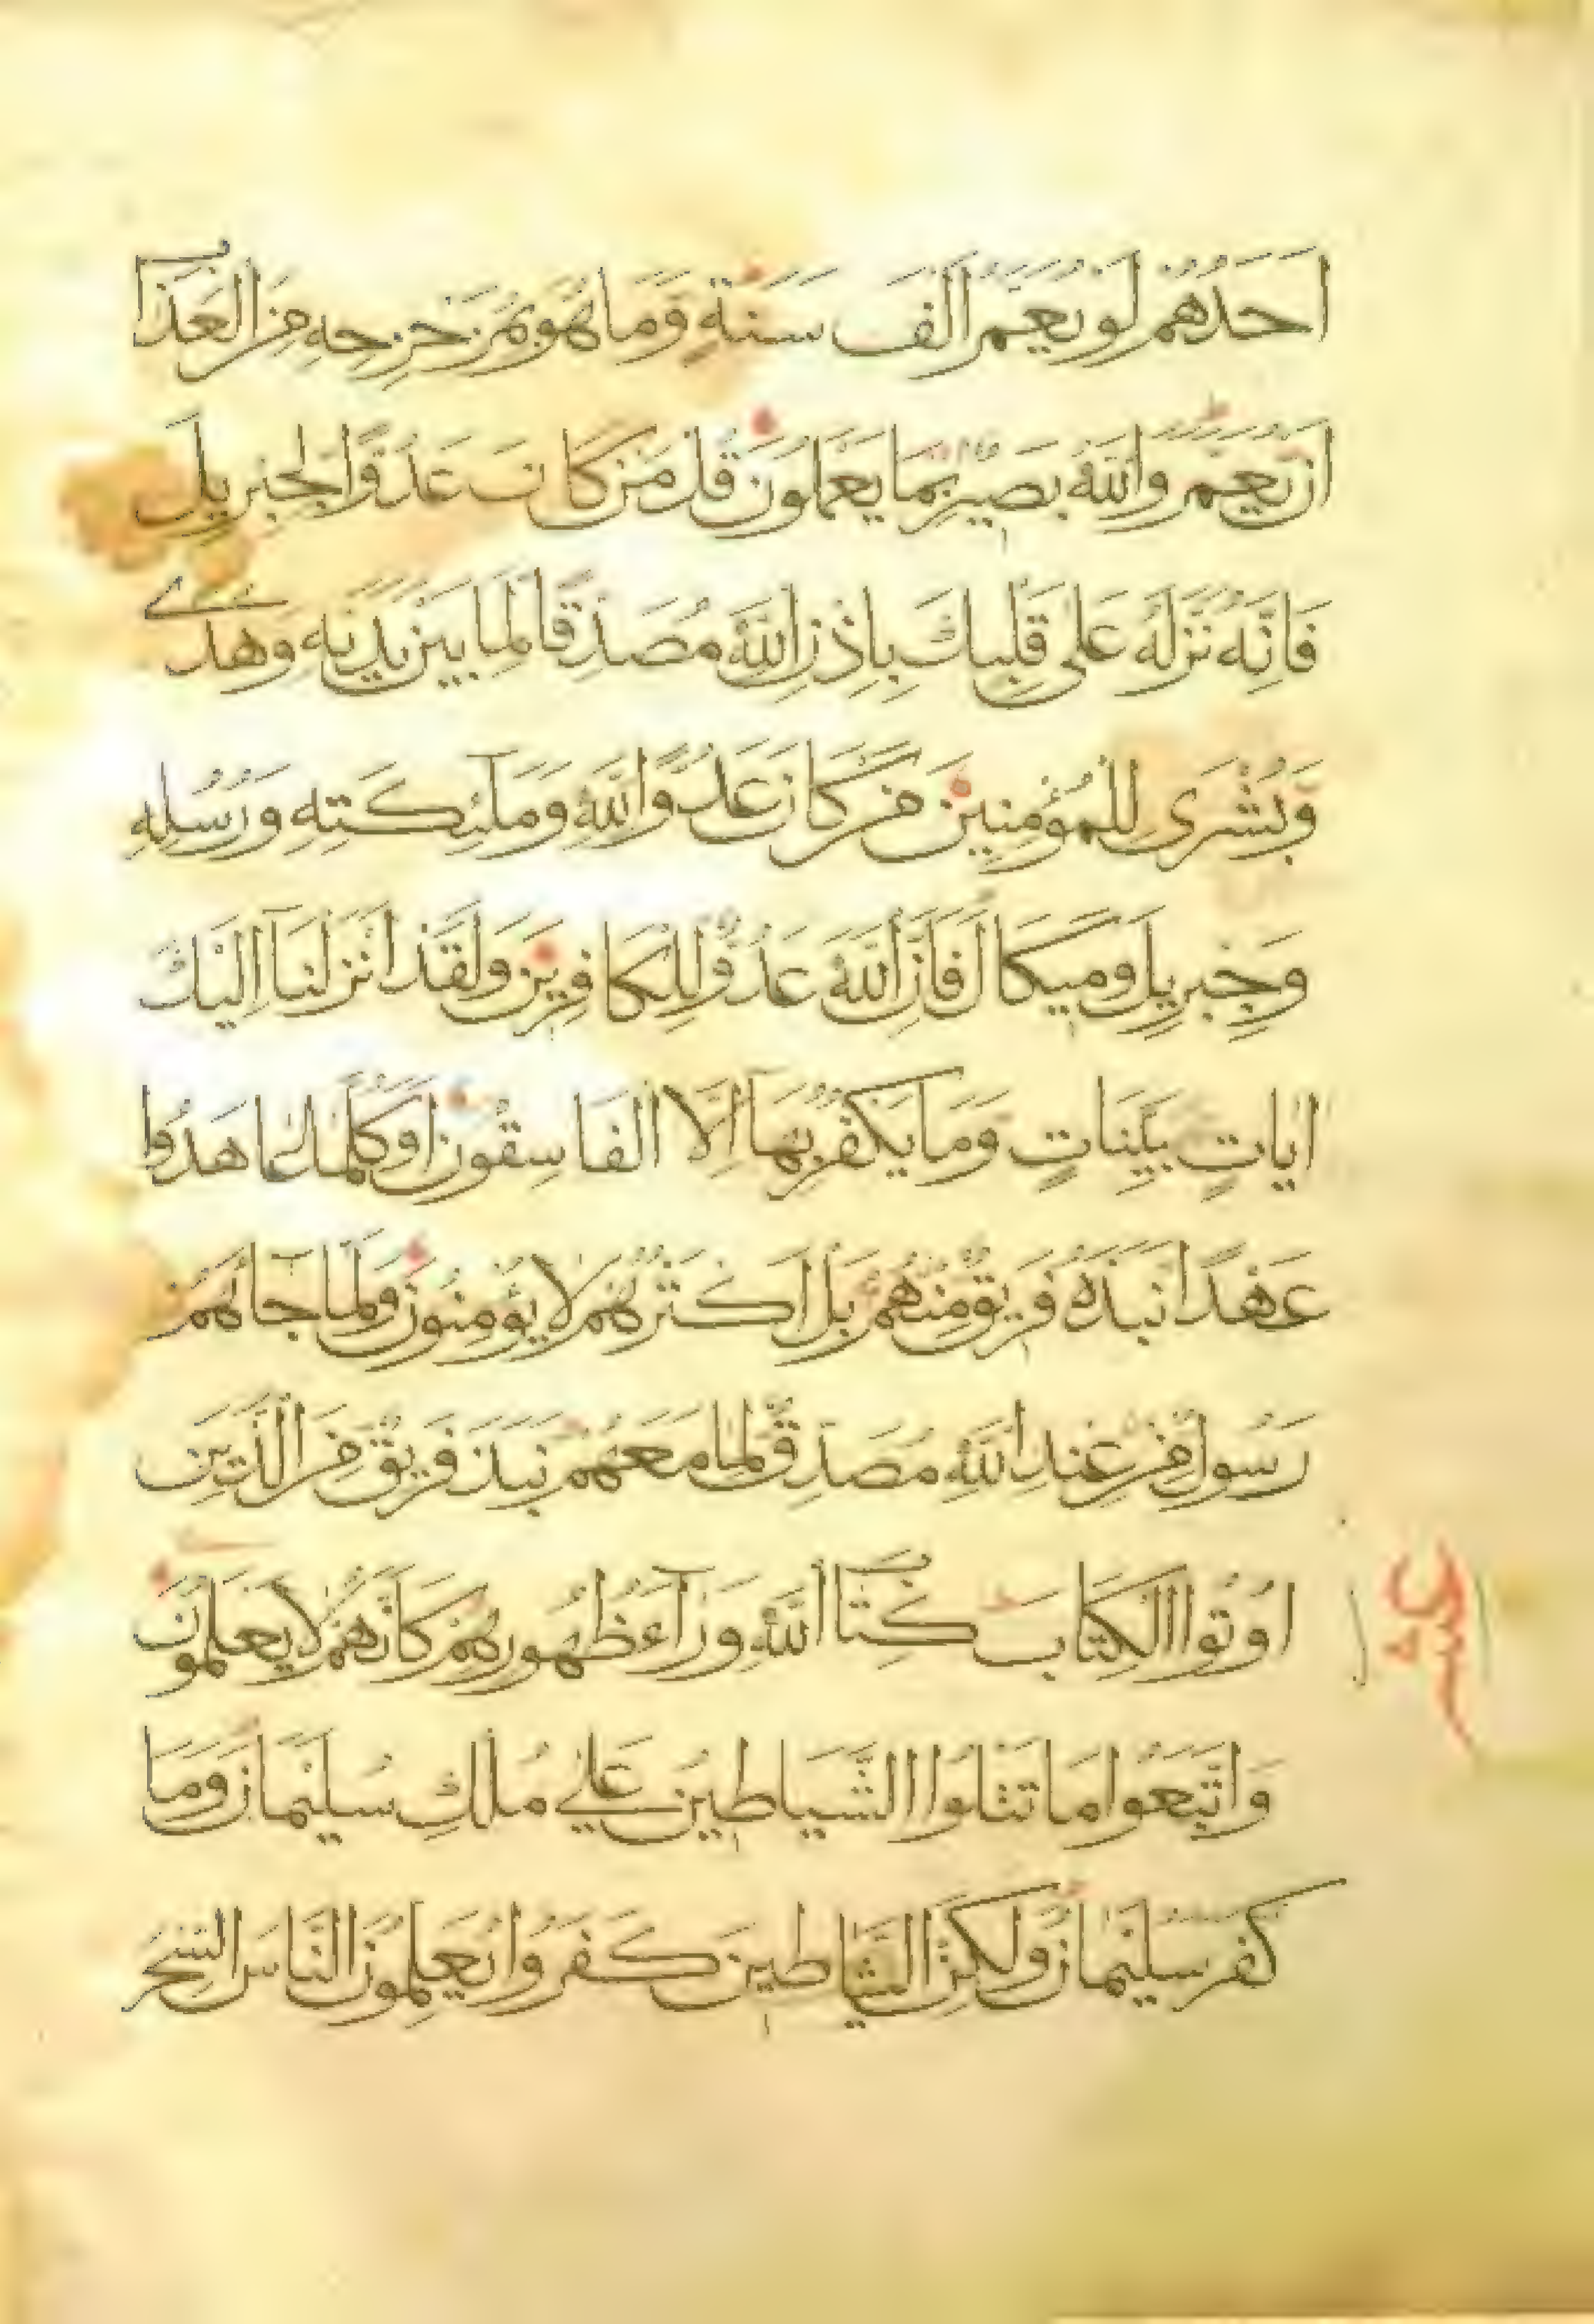 اَحَدُهُمْ لَوْ يُعَمَّرُ اَلْفَ سَنَةٍ وَمَا هُوَ بِمُزَحْزِحِهِ مِنَ الْعَذَابِ
اَنْ يُعَمَّرَ وَاللّٰهُ بَصِيرٌ بِمَا يَعْمَلُونَ قُلْ مَنْ كَانَ عَدُوًّا لِجِبْرِيلَ
فَاِنَّهُ نَزَّلَهُ عَلٰى قَلْبِكَ بِاِذْنِ اللّٰهِ مُصَدِّقًا لِمَا بَيْنَ يَدَيْهِ وَهُدًى
وَبُشْرٰى لِلْمُؤْمِنِينَ مَنْ كَانَ عَدُوًّا لِلّٰهِ وَمَلٰٓئِكَتِهِ وَرُسُلِهِ
وَجِبْرِيلَ وَمِيكَالَ فَاِنَّ اللّٰهَ عَدُوٌّ لِلْكَافِرِينَ وَلَقَدْ اَنْزَلْنَآ اِلَيْكَ
اٰيَاتٍ بَيِّنَاتٍ وَمَا يَكْفُرُ بِهَآ اِلَّا الْفَاسِقُونَ اَوَكُلَّمَا عَاهَدُوا
عَهْدًا نَبَذَهُ فَرِيقٌ مِنْهُمْ بَلْ اَكْثَرُهُمْ لَا يُؤْمِنُونَ وَلَمَّا جَآءَهُمْ
رَسُولٌ مِنْ عِنْدِ اللّٰهِ مُصَدِّقٌ لِمَا مَعَهُمْ نَبَذَ فَرِيقٌ مِنَ الَّذِينَ
اُوتُوا الْكِتَابَ كِتَابَ اللّٰهِ وَرَآءَ ظُهُورِهِمْ كَاَنَّهُمْ لَا يَعْلَمُونَ
وَاتَّبَعُوا مَا تَتْلُوا الشَّيَاطِينُ عَلٰى مُلْكِ سُلَيْمَانَ وَمَا
كَفَرَ سُلَيْمَانُ وَلٰكِنَّ الشَّيَاطِينَ كَفَرُوا يُعَلِّمُونَ النَّاسَ السِّحْرَ